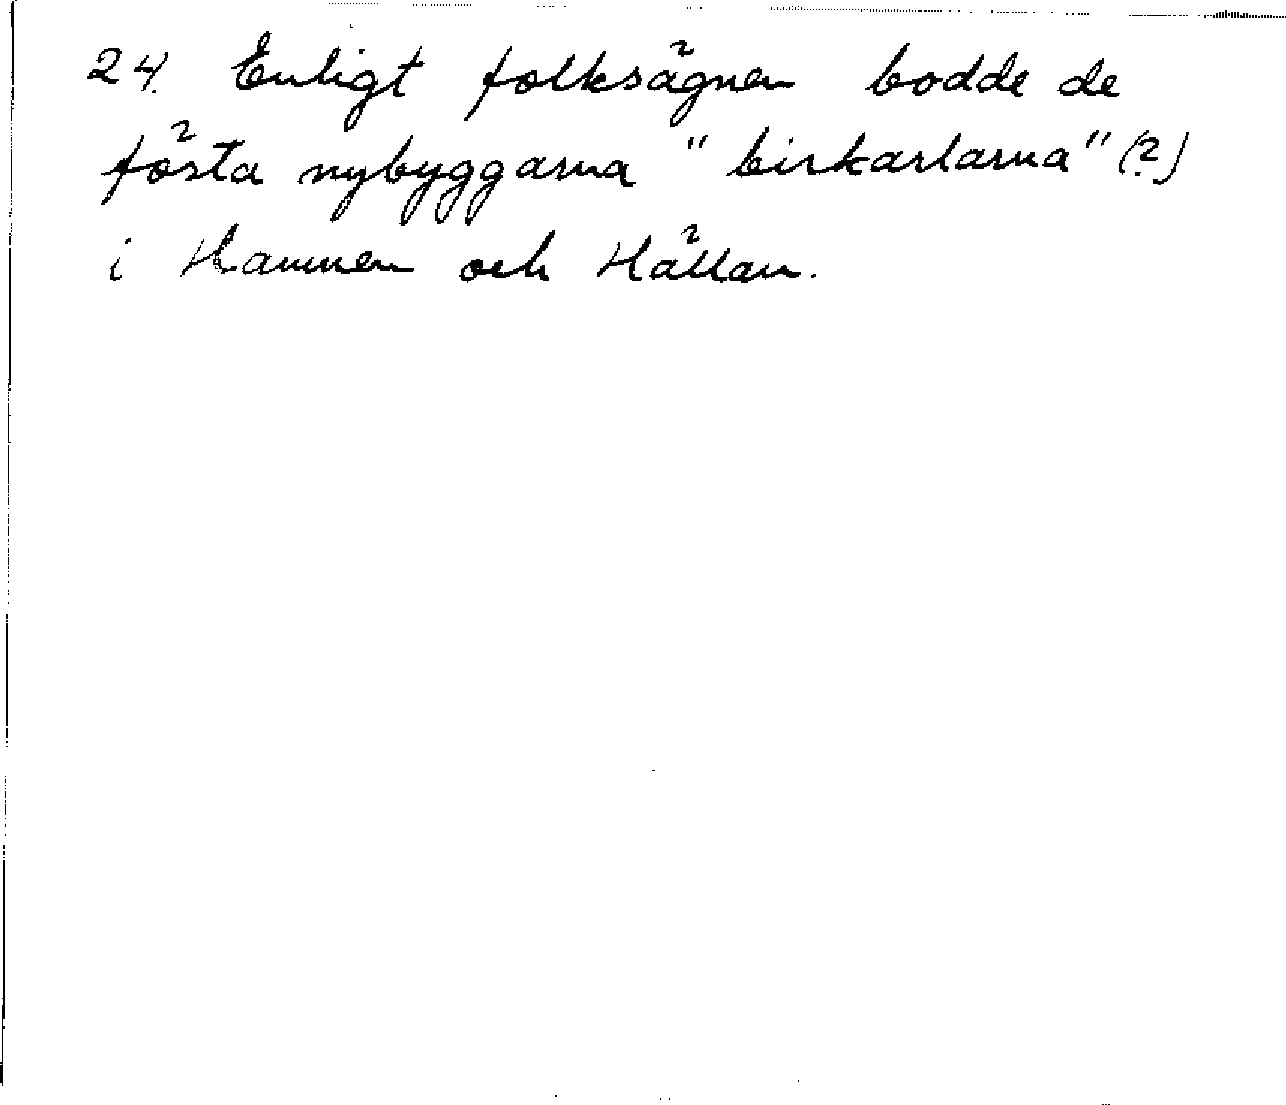 24. Enligt folksägnen bodde de
fösta nybyggarna "birkarlarna" (?)
i Hamnen och Hällan.